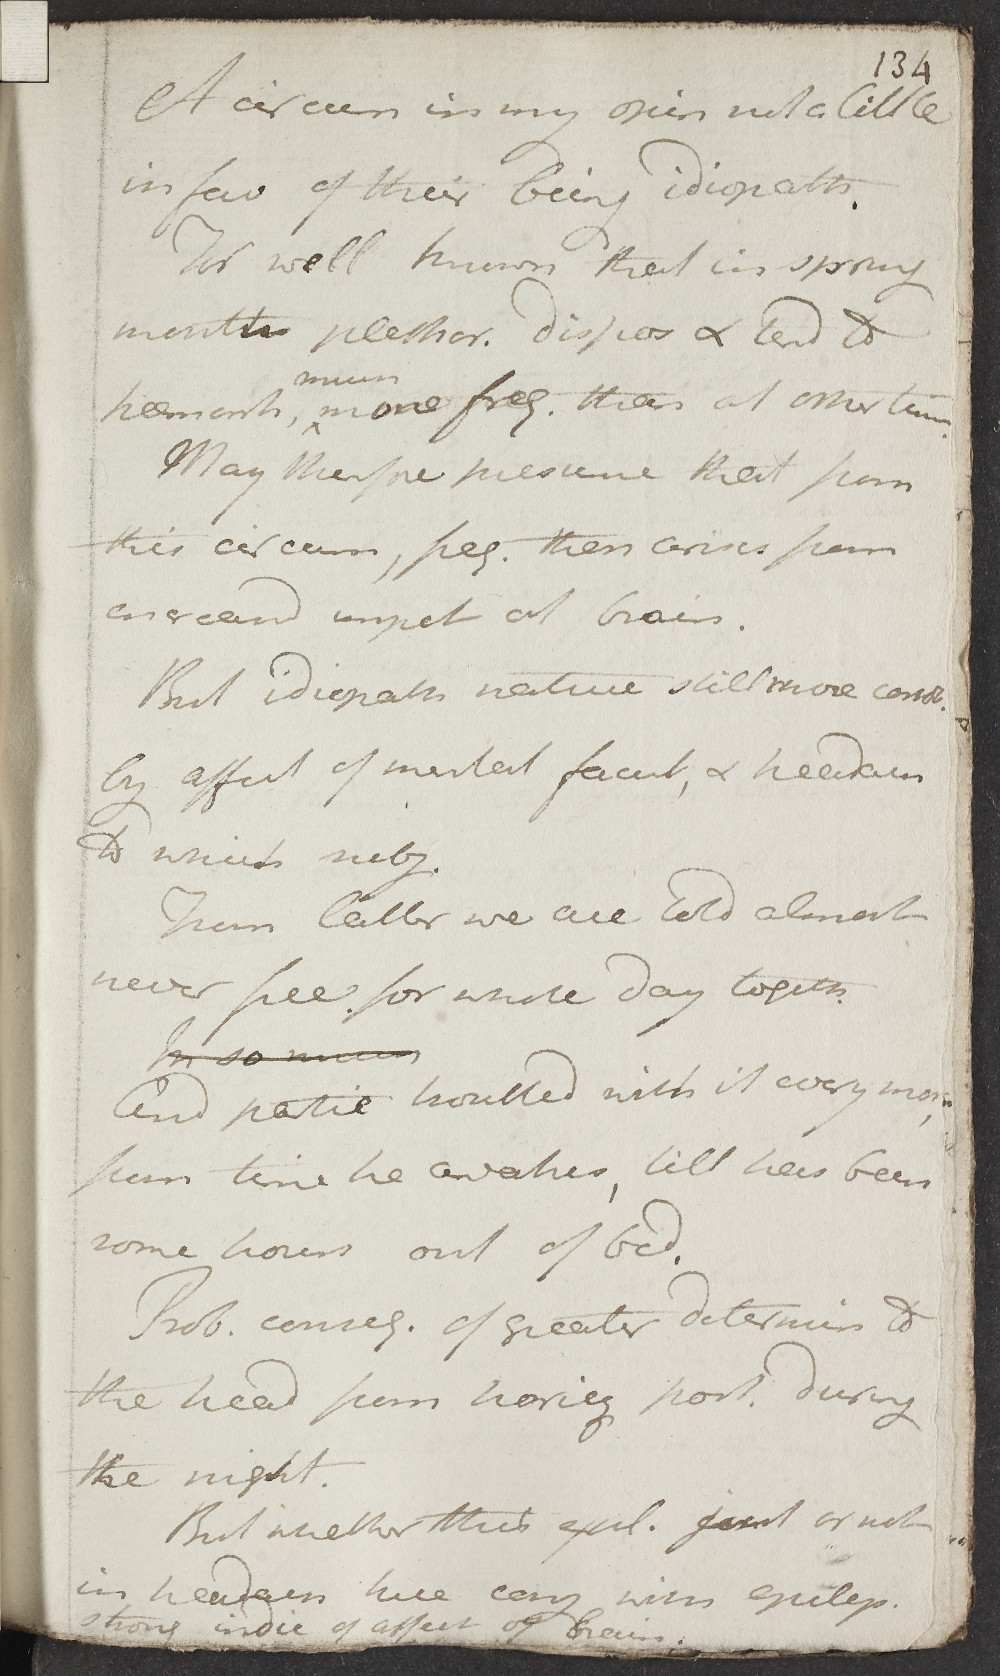 134
A circum in my opin not a little
in fav of their being idiopath.
For well known that in spring
months plethor. dispos & tend to
hemorrh, ^ more freq. than at other times.
much
May therfore presume that from
this circum, freq. then arises from
increased impet at brain.
But idiopath nature still more conf.
by affect of mental facult, & headach
to which subj.
From latter we are told almost
never free for whole day togeth.
In so much
And patie troubled with it every morn,
from time he awakes, till has been
some hours out of bed.
Prob. conseq. of greater determin to
the head from horiz post. during
the night.
But whether this expl. just or not
in headach here conj with epilep.
strong indic of affect of brain.